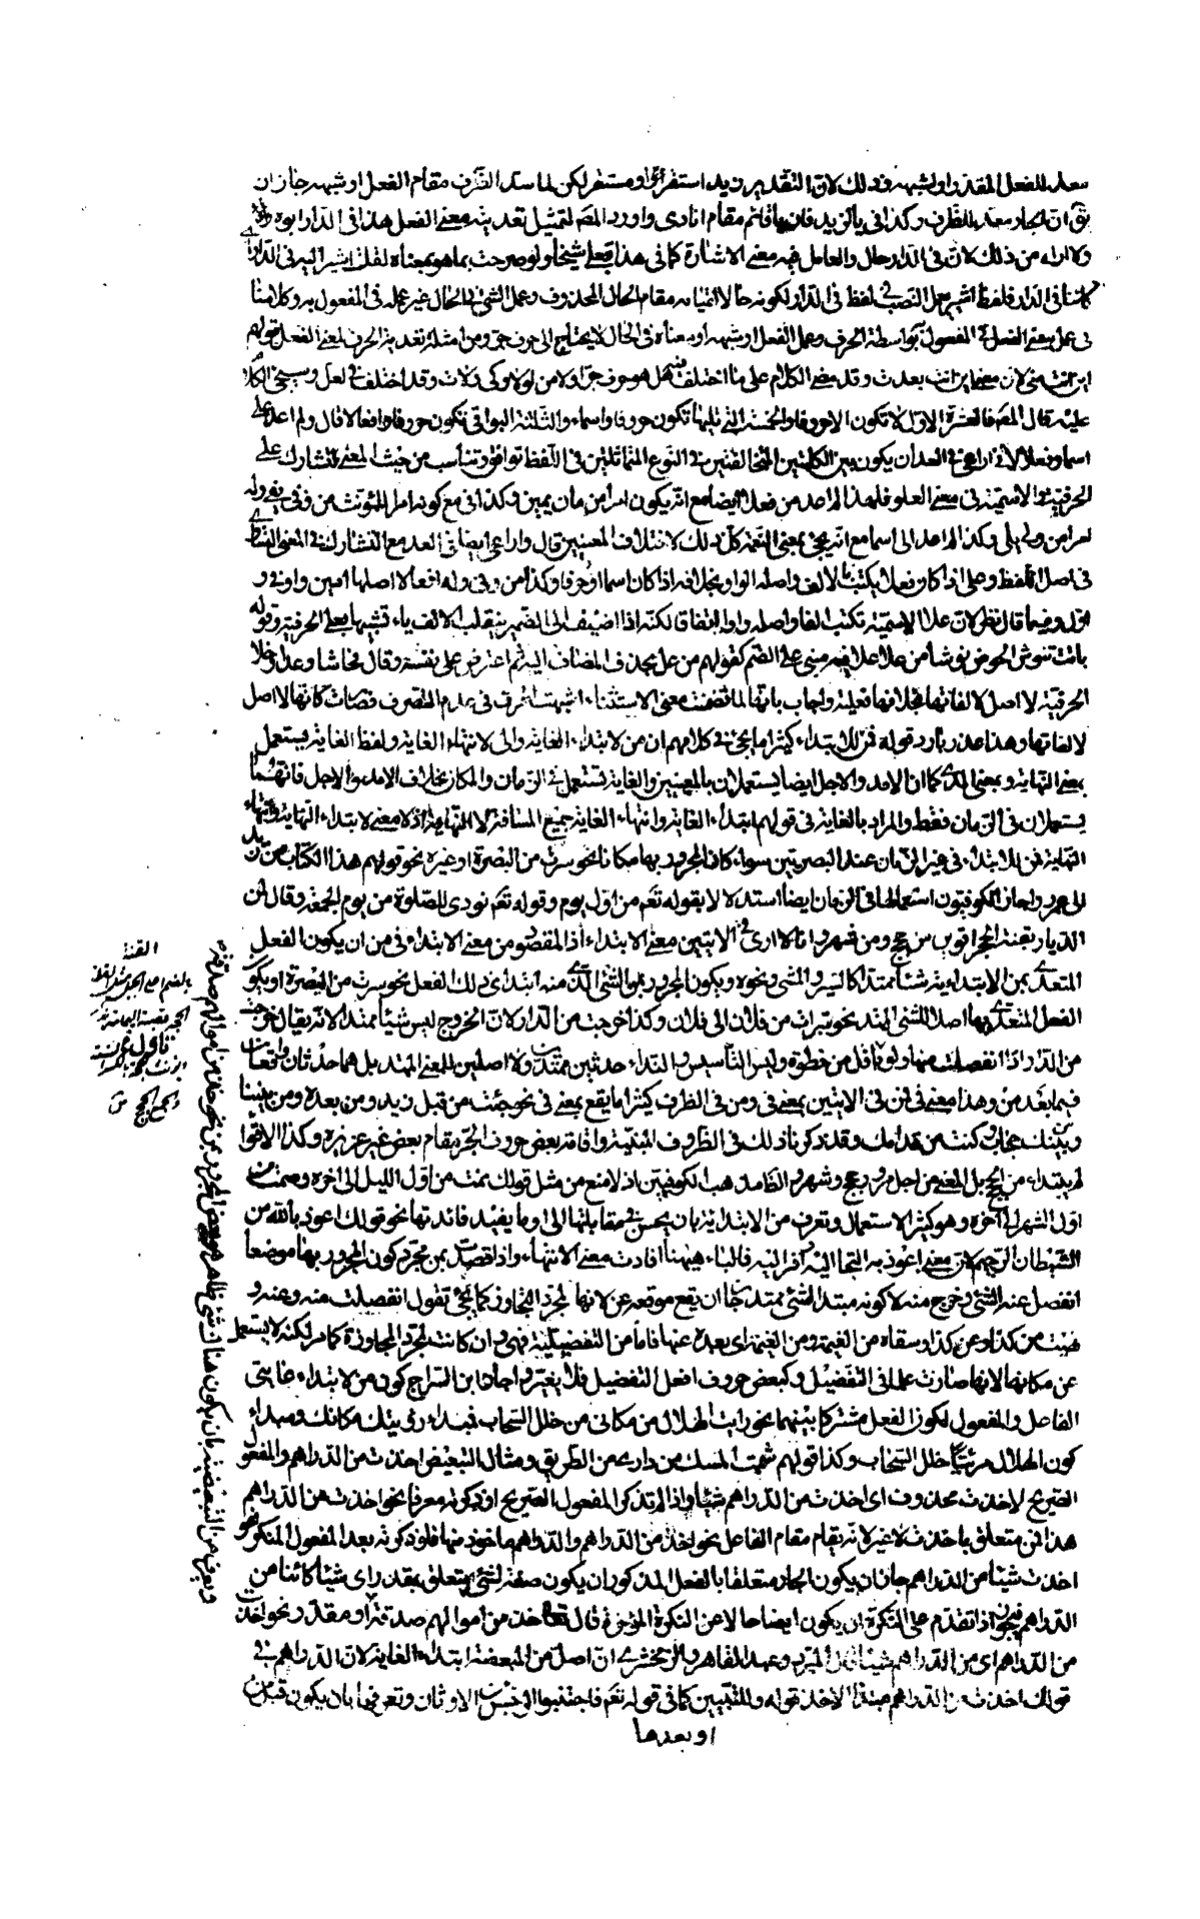 معد للفعل المقدر او لشبهه وذلك لان التقدير زيد استقر او مستقر لكن لما سد الظرف مقام الفعل او شبهه جاز ان
ان الجار معد للظرف وكذا في يا لزيد فان يا قائم مقام انادى واورد المص لتمثيل تعديته معنى الفعل هذا في الدار ابوه
ولا اراه من ذلك لان في الدار حال والعامل فيه معنى الاشارة كما في هذا بعلى شيخا ولو صرحت بما هو بمعناه لقلت اشير اليه في الدار
كائنا في الدار فلفظ اشير عمل النصب في لفظ في الدار لكونه حالا لقيامه مقام الحال المحذوف وعمل الشئ في الحال غير عمله في المفعول به وكلامنا
في عمل معنى الفعل في المفعول به بواسطة الحرف وعمل الفعل او شبهه او معناه في الحال لا يحتاج الى حرف جر ومن امثلة تعدية الحرف لمعنى الفعل قولهم
اين انت منى لان معنى اين انت بعدت وقد مضى الكلام على ما اختلف فيه هل هو حرف جر اولا من لولا وكى ولات وقد اختلف في لعل وسيجئ الكلام
عليه قال المص فالعشرة الاول لا تكون الا حروفا والخمسة التي تليها تكون حروفا واسماء والثلثة البواقي تكون حروفا وافعالا قال ولم اعد على
اسما وفعلا لاني اراعى في العد ان يكون بين الكلمتين المتخالفتين في النوع المتماثلتين في اللفظ توافق وتناسب من حيث المعنى كتشارك على
الحرفية والاسمية في معنى العلو فلهذا لم اعد من فعلا ايضا مع انه يكون امرا من مان يمين وكذا في مع كونه امر المؤنث من وفى يفى وله
امرا من ولى يلى وكذا لم اعد الى اسما مع انه يجئ بمعنى النعمة كل ذلك لاختلاف المعنيين قال واراعى ايضا في العد مع التشارك في المعنى التشارك
في اصل اللفظ وعلى اذا كان فعلا يكتب بالالف واصله الواو بخلافه اذا كان اسما او حرفا وكذا من وفى وله افعالا اصلها امين واوفى و
اولى وفيما قال نظر لان على الاسمية تكتب الفا واصله واو اتفاقا لكنه اذا اضيف الى الضمير ينقلب الالف ياء تشبيها بعلى الحرفية وقوله
باتت تنوش الحوض نوشا من علا علا فيه مبنى على الضم كقولهم من عل بحذف المضاف اليه ثم اعترض على نفسه وقال بحاشا وعدا وخلا
الحرفية لا اصل لالفاتها بخلافها فعلية واجاب بانها لما تضمنت معنى الاستثناء اشبهت الحرف في عدم التصرف فصارت كانها لا اصل
لالفاتها وهذا عذر بارد قوله فمن للابتداء كثيرا ما يجئ في كلامهم ان من لابتداء الغاية والى لانتهاء الغاية ولفظ الغاية يستعمل
بمعنى النهاية وبمعنى المدى كما ان الامد والاجل ايضا يستعملان بالمعنيين والغاية تستعمل في الزمان والمكان بخلاف الامد والاجل فانهما
يستعملان في الزمان فقط والمراد بالغاية في قولهم ابتداء الغاية وانتهاء الغاية جميع المسافة لا النهاية اذ لا معنى لابتداء النهاية وانتهاء
النهاية فمن للابتداء في غير الزمان عند البصريين سواء كان المجرور بها مكانا نحو سرت من البصرة او غيره نحو قولهم هذا الكتاب من زيد
الى عمرو واجاز الكوفيون استعمالها في الزمان ايضا استدلالا بقوله تعم من اول يوم وقوله تعم نودى للصلوة من يوم الجمعة وقال لمن
الديار بقنة الحجر اقوين من حجج ومن شهر وانا لا ارى في الايتين معنى الابتداء اذ المقصود من معنى الابتداء في من ان يكون الفعل
المتعدى بمن الابتدائية شيئا ممتدا كالسير والمشى ونحوه ويكون المجرور بمن الشئ الذى منه ابتدئ ذلك الفعل نحو سرت من البصرة او يكون
الفعل المتعدى بها اصلا للشئ الممتد نحو تبرأت من فلان الى فلان وكذا خرجت من الدار لان الخروج ليس شيئا ممتدا لانه يقال خرجت
من الدار اذا انفصلت منها ولو باقل من خطوة وليس التأسيس والنداء حدثين ممتدين ولا اصلين للمعنى الممتد بل هما حدثان واقعان
فيما بعد من وهذا معنى في فمن في الايتين بمعنى في ومن في الظرف كثيرا ما يقع بمعنى في نحو جئت من قبل زيد ومن بعده ومن بيننا
وبينك حجاب وكنت من قدامك وقد ذكرنا ذلك في الظروف المبنية واقامة بعض حروف الجر مقام بعض غير عزيزة وكذا الاقواء
لم يبتدء من الحجج بل المعنى من اجل مر حجج وشهر والظاهر مذهب الكوفيين اذ لا منع من مثل قولك نمت من اول الليل الى اخره وصمت من
اول الشهر الى آخره وهو كثير الاستعمال وتعرف من الابتدائية بان يحسن في مقابلتها الى او ما يفيد فائدتها نحو قولك اعوذ بالله من
الشيطان الرجيم لان معنى اعوذ به التجأ اليه وافر اليه فالباء ههنا افادت معنى الانتهاء واذا قصدت بمن مجرد كون المجرور بها موضعا
انفصل عنه الشئ وخرج منه لا كونه مبتدأ لشئ ممتد جاز ان يقع موقعه عن لانها لمجرد التجاوز كما يجئ تقول انفصلت منه وعنه و
نهيت من كذا وعن كذا وسقاه من العيمة وعن العيمة اى بعده عنها فاما من التفضيلية فهى وان كانت لمجرد المجاوزة كما مر لكنه لا يستعمل
عن مكانها لانها صارت علما في التفضيل وكبعض حروف افعل التفضيل فلا يغير واجاز ابن السراج كون من لابتداء غايتى
الفاعل والمفعول لكون الفعل مشتركا بينهما نحو رايت الهلال من مكانى من خلل السحاب فمبداء رؤيتك مكانك ومبداء
كون الهلال مرئيا خلل السحاب وكذا قولهم شممت المسك من دارى من الطريق ومثال التبعيض اخذت من الدراهم والمفعول
الصريح لاخذت محذوف اى اخذت من الدراهم شيئا واذا لم تذكر المفعول الصريح او ذكرته معرفا نحو اخذت من الدراهم
هذا فمن متعلق باخذت لا غير لانه يقام مقام الفاعل نحو اخذ من الدراهم والدراهم ماخوذ منها فلو ذكرته بعد المفعول المنكر نحو
اخذت شيئا من الدراهم جاز ان يكون الجار متعلقا بالفعل المذكور وان يكون صفة لشئ فيتعلق بمقدر اى شيئا كائنا من
الدراهم فيجوز اذا تقدم على النكرة ان يكون ايضا حالا عن النكرة المؤخرة قال تعا خذ من اموالهم صدقة او مقدر نحو اخذت
من الدراهم اى من الدراهم شيئا قال المبرد وعبد القاهر والزمخشرى ان اصل من المبعضة ابتداء الغاية لان الدراهم في
قولك اخذت من الدراهم مبدأ الاخذ قوله وللتبيين كما في قوله تعم فاجتنبوا الرجس من الاوثان وتعرفها بان يكون قبل من
او بعدها
وتعرف من التبعيضية بان يكون هناك شئ ظاهر هو بعض المجرور بمن نحو خذ من اموالهم صدقة
القنة
بالضم اعلى الجبل